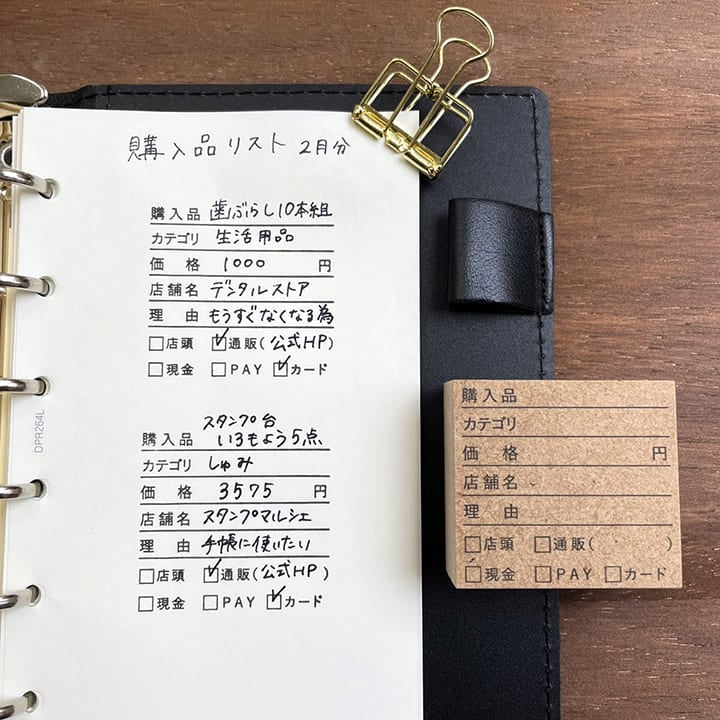 購入品リスト 2月分
購入品 歯ぶらし10本組
カテゴリ 生活用品
価 格 1000 円
店舗名 デンタルストア
理 由 もうすぐなくなる為
□店頭 ☑通販(公式HP)
□現金 □PAY ☑カード
スタンプ台
購入品 いろもよう5点
カテゴリ しゅみ
価 格 3575 円
店舗名 スタンプマルシェ
理 由 手帳に使いたい
□店頭 ☑通販(公式HP)
□現金 □PAY ☑カード
DPR264L
購入品
カテゴリ
価 格 円
店舗名
理 由
□店頭 □通販( )
□現金 □PAY □カード